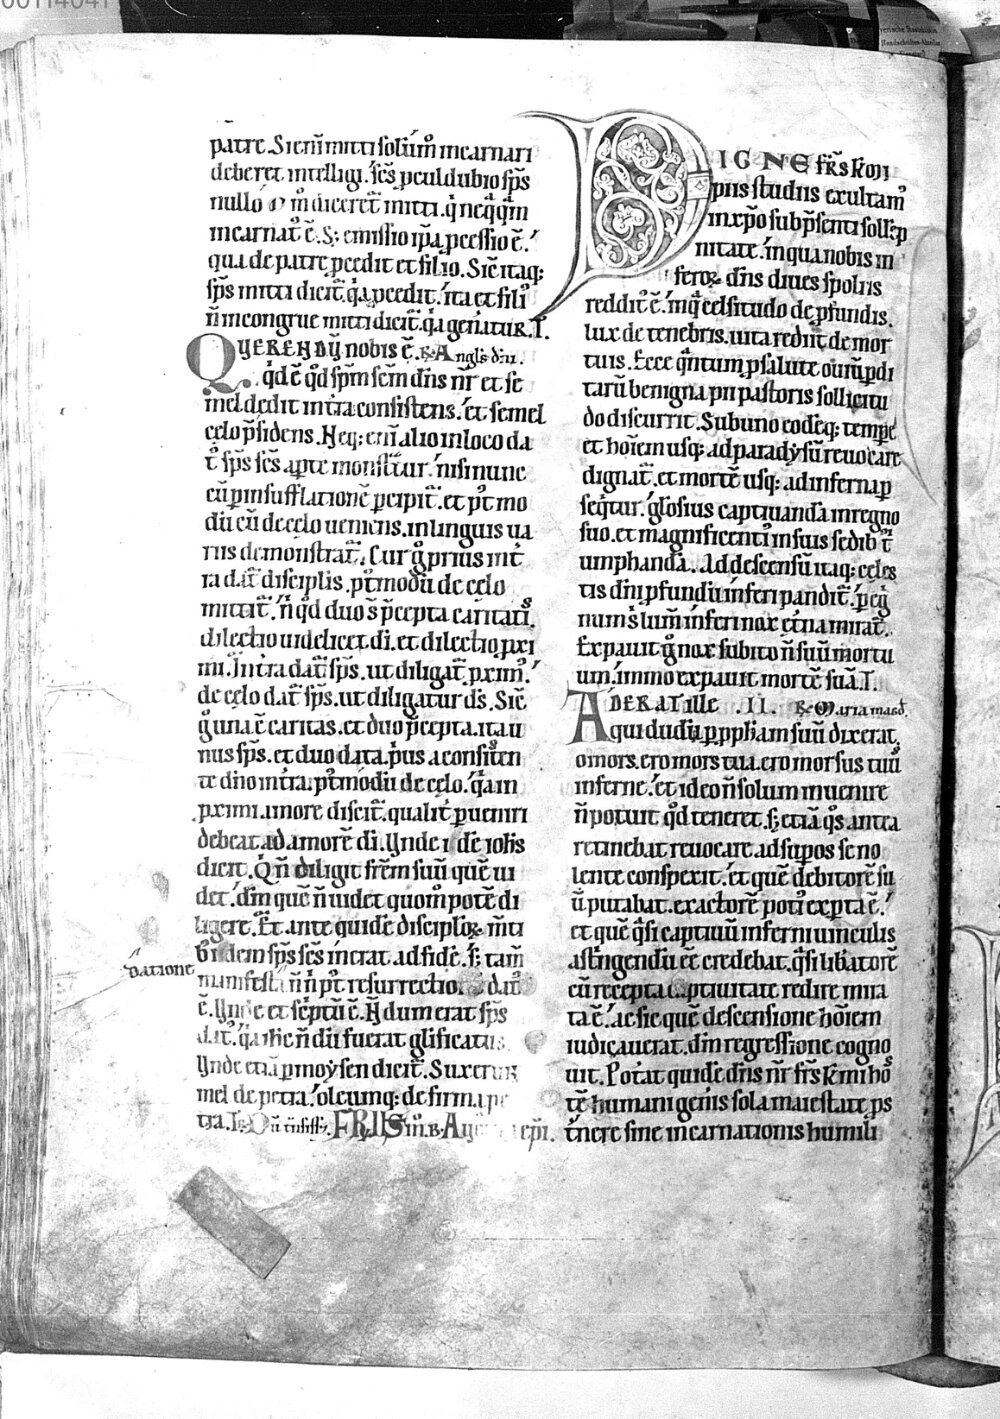 patre. Si eni mitti solūm incarnari
deberet intelligi. scs pculdubio sps
nullo m̄ diceret mitti. q̇ neq̄q̄m
incarnat ē. S; emissio ip̄a pcessio ē.
qua de patre pcedit et filio. Sic̄ itaq;
sps mitti dicit. q̇a pcedit. ita et fili
n̄ incongrue mitti dicit. q̇a genatur. I.
QUERENDŪ nobis ē. R Angl's dn̄i.
q̇d ē q̇d spm scm dn̄s nr̄ et se
mel dedit in tra consistens. et semel
cęlo p̄sidens. Neq; eni alio in loco da
t̄ sps scs apte monstrat. nisi nunc
cū p insufflationē pcipit. et p̄t mo
dū cū de cęlo ueniens. in linguis ua
riis demonstrat̄. Cur g̊ prius in t̄
ra dat̄ disciplis. p̄tmodū de cęlo
mittit̄. n̄ q̇d duo s̄ p̄cepta caritati.
dilectio uidelicet di. et dilectio pxi
mi. In tra dat̄ sps. ut diligat̄ pxim.
de cęlo dat̄ sps. ut diligatur ds. Sic̄
g̊ una ē caritas. et duo p̄cepta. ita u
nus sps. et duo data. p̄us a consisten
te dn̄o in tra. p̄tmodū de cęlo. q̇a in
primi amore discit̄. qualit̄ pueniri
debeat ad amorē di. Unde idē iohs
dicit. Q̇ n̄ diligit frēm suū quē ui
det. dm̄ quē n̄ uidet quom̊ potē di
ligere. Et ante quidē discipulor m̄ti
b; idem sps scs inerat ad fidē. s; tam̄
datione
manifesta n̄ n̄ p̄t resurrectionē dat̄
ē. Unde et sc̄ptū ē. N̄dum erat sps
dat̄. q̇a ihc n̄dū fuerat glificatus.
Unde etiā p moysen dicit̄. Suxerun
mel de petra. oleumq; de firma pe
tra. FRIIS in. B. A epi.
DIGNE frs km
piis studiis exultam̊
in xp̄o sub p̄senti sollēp
nitate. in qua nobis in
feror dn̄s diues spoliis
reddit̊ ē. in q̊ celsitudo de pfundis.
lux de tenebris. uita rediit de mor
tuis. Ecce q̇ntum p salute ouiū pdi
tarū benigna pii pastoris sollicitu
do discurrit. Sub uno eodēq; tempe
et hoīem usq; ad paradysū reuocare
dignat̄. et mortē usq; ad inferna p
seq̇tur. glosius captiuanda in regno
suo. et magnificenti̊ in suis sedib; t̄
umphanda. Ad descensū itaq; cęles
tis dn̄i pfundū inferi pandit̄. peg
num s̄ lum̄ inferi nox et̄na mirat̄.
Expauit g̊ nox subito n̄ suū mortu
um. immo expauit mortē suā. I.
ADERAT ille .II. R Maria magd.
qui dudū p pphiam suū dixerat.
o mors. ero mors tua. ero morsus tuu
inferne. et ideo n̄ solum inuenire
n̄ potuit q̇d teneret. s; etiā q̇s antea
retinebat reuocare ad supos se no
lente conspexit. et quē debitorē su
ū putabat. exactorē poti̊ expta ē.
et quē q̇si captiuū inferni uinculis
astringendū eē credebat. q̇si lib̄atorē
cū recepta captiuitate redire mira
ta ē. ac sic quē descensione hoīem
iudicauerat. dm̄ regressione cogno
uit. Potat̄ quidē dn̄s nr̄ frs kmi ho
tē humani genis sola maiestate ps
t̄nere sine incarnationis humili